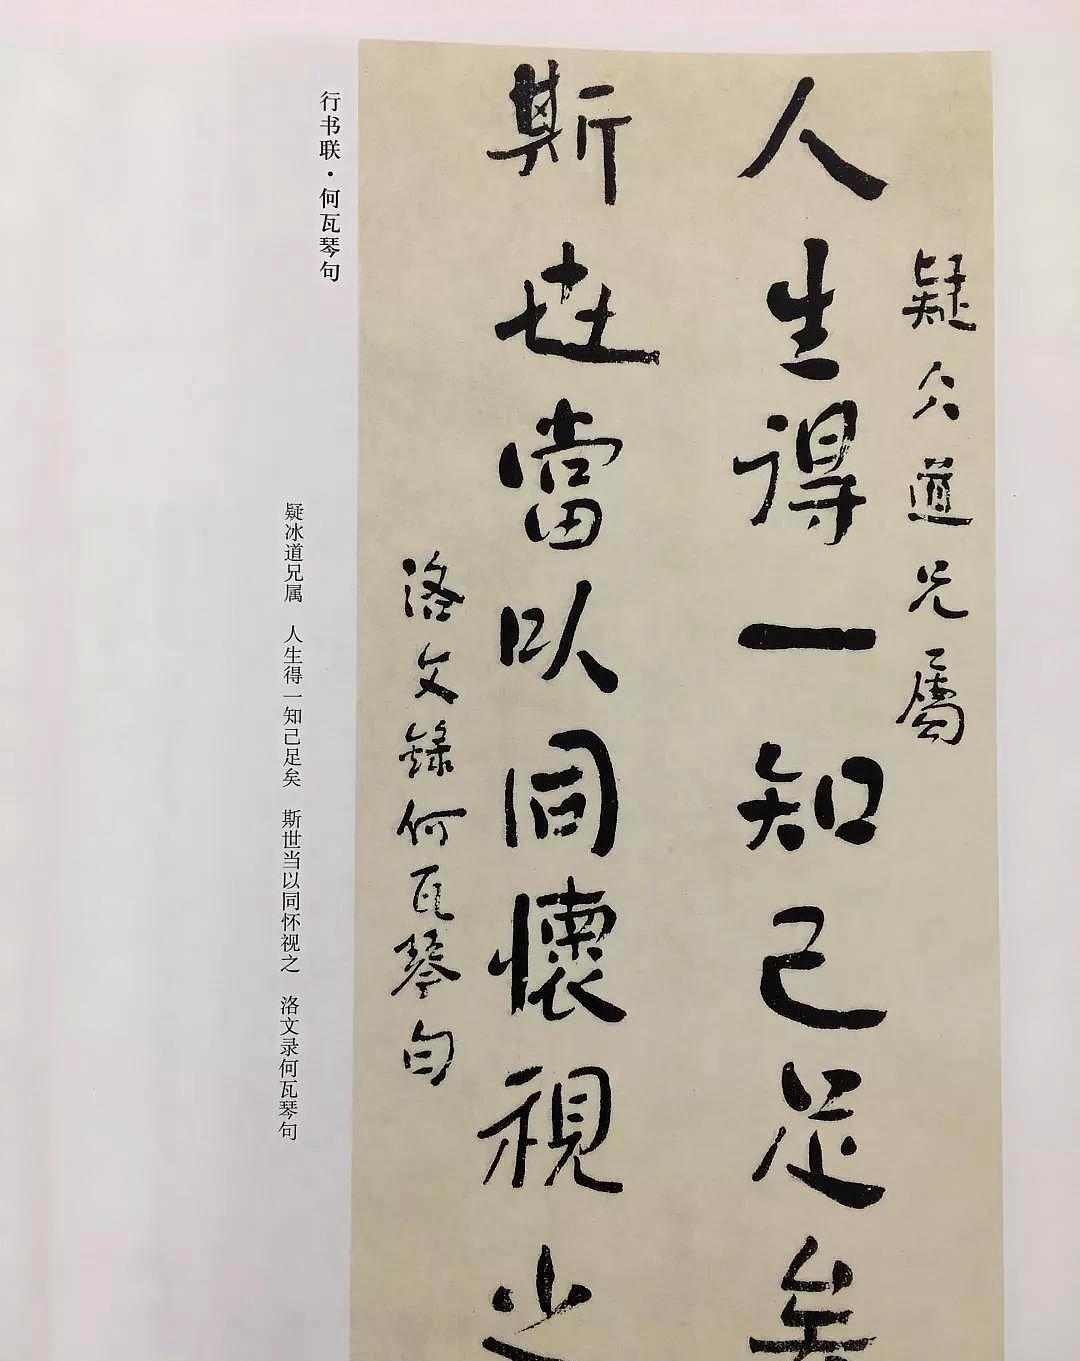 疑仌道兄属
人生得一知己足矣
斯世當以同懷視之
洛文錄何瓦琴句
行书联·何瓦琴句
疑冰道兄属　人生得一知己足矣　斯世当以同怀视之　洛文录何瓦琴句